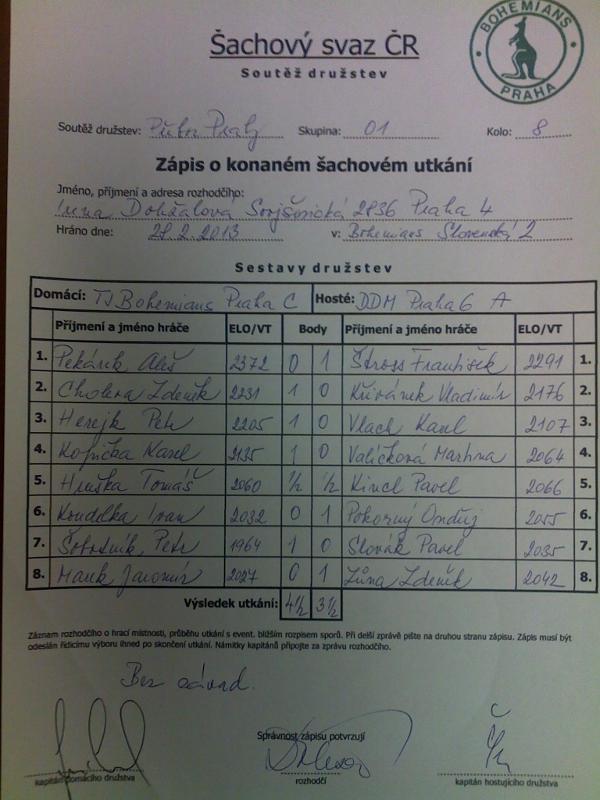 BOHEMIANS
PRAHA
Šachový svaz ČR
Soutěž družstev
Soutěž družstev: Přebor Prahy Skupina: 01 Kolo: 8
Zápis o konaném šachovém utkání
Jméno, příjmení a adresa rozhodčího:
Irena Dohžalová 2836 Praha 4
Hráno dne: 28.2.2013 v: Bohemians Slovenská 2
Sestavy družstev
Domácí: TJ Bohemians Praha C Hosté: DDM Praha 6 A
Příjmení a jméno hráče ELO/VT Body Příjmení a jméno hráče ELO/VT
1. Pekárek, Aleš 2372 0 1 Štross František 2291 1.
2. Cholera Zdeněk 2231 1 0 Křivánek Vladimír 2176 2.
3. Herejk Petr 2205 1 0 Vlach Karel 2107 3.
4. Kopička Karel 2135 1 0 Valíčková Martina 2064 4.
5. Hruška Tomáš 2060 ½ ½ Kincl Pavel 2066 5.
6. Koudelka Ivan 2032 0 1 Pokorný Ondřej 2055 6.
7. Šobotník, Petr 1964 1 0 Slovák Pavel 2035 7.
8. Marek Jaromír 2027 0 1 Lůna Zdeněk 2042 8.
Výsledek utkání: 4½ 3½
Záznam rozhodčího o hrací místnosti, průběhu utkání s event. bližším rozpisem sporů. Při delší zprávě pište na druhou stranu zápisu. Zápis musí být
odeslán řídícímu výboru ihned po skončení utkání. Námitky kapitánů připojte za zprávu rozhodčího.
Bez závad.
Správnost zápisu potvrzují
kapitán domácího družstva rozhodčí kapitán hostujícího družstva